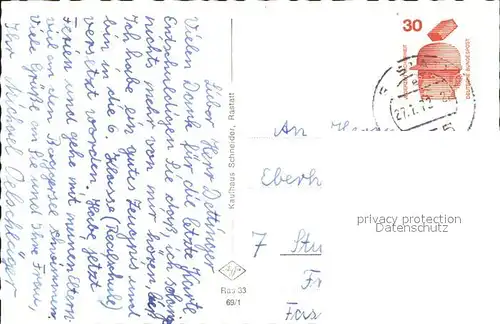 Lieber Herr Dottinger
Vielen Dank für die letzte Karte
Entschuldigen Sie daß, ich solange
nichts mehr von mir hören, ließ
Ich habe ein gutes Zeugnis und
bin in die 6. Klasse (Realschule)
versetzt worden. Habe jetzt
Ferien und gehe mit meinen Eltern
viel an den Baggersee schwimmen.
Viele Grüße an Sie und Ihre Frau,
Ihr Michael
Kaufhaus Schneider, Rastatt
Ras 33
69/1
30
DEUTSCHE BUNDESPOST
27.7.
An
Eberh
7 Stu
privacy protection
(VERWENDER)